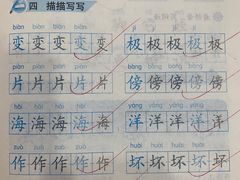 四 描描写写
biàn biàn biàn biàn jí jí jí jí
变 变 变 变 极 极 极 极
piàn piàn piàn piàn bàng bàng bàng bàng
片 片 片 片 傍 傍 傍 傍
hǎi hǎi hǎi hǎi yáng yáng yáng yáng
海 海 海 海 洋 洋 洋 洋
zuò zuò zuò zuò huài huài huài huài
作 作 作 作 坏 坏 坏 坏